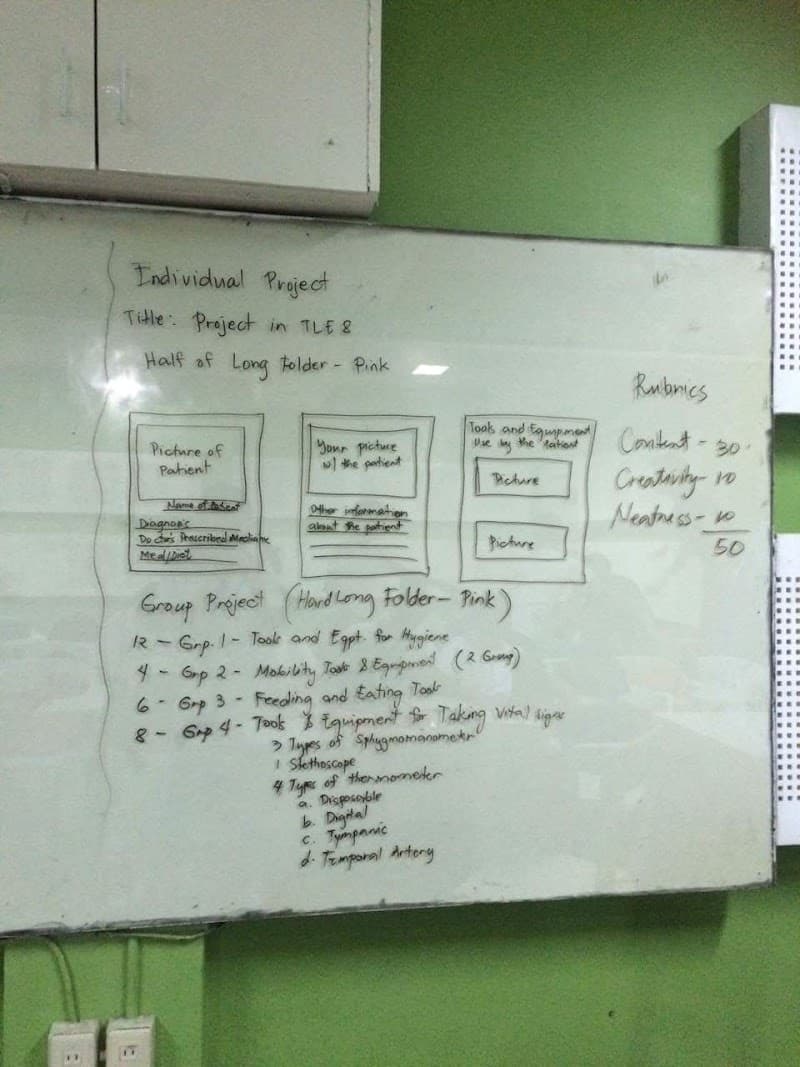 Individual Project
Title: Project in TLE 8
Half of Long Folder - Pink
Picture of
Patient
Name of Patient
Diagnosis
Doctor's Prescribed Medicine
Med/Diet
Your picture
w/ the patient
Other information
about the patient
Tools and Equipment
Use by the Patient
Picture
Picture
Rubrics
Content - 30
Creativity - 10
Neatness - 10
50
Group Project (Hard Long Folder - Pink)
12 - Grp. 1 - Tools and Eqpt. for Hygiene
4 - Grp 2 - Mobility Tools & Equipment (2 Group)
6 - Grp 3 - Feeding and Eating Tools
8 - Grp 4 - Tools & Equipment for Taking Vital Signs
3 Types of Sphygmomanometer
1 Stethoscope
4 Types of thermometer
a. Disposable
b. Digital
c. Tympanic
d. Temporal Artery